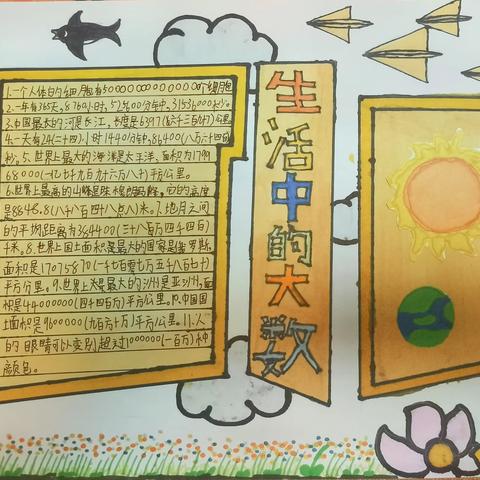 1.一个人体的细胞有50000000000000个细胞
2.一年有365天,8760小时,525600分钟,31536000秒。
3.中国最大的河是长江,长度是6397(六千三百九十)公里。
4.一天有24(二十四)小时1440分钟,86400(八万六千四百)
秒。5.世界上最大的海洋是太平洋、面积为1799
68000(一亿七千九百九十六万八千)平方公里。
6.世界上最高的山峰是珠穆朗玛峰。它的高度
是8848.8(八千八百四十八点八)米。7.地月之间
的平均距离为384400(三十八万四千四百)
千米。8.世界国土面积是最大的国家是俄罗斯,
面积是17075870(一千七百零七万五千八百七十)
平方公里。9.世界上大最大的洲是亚洲,面
积是44000000(四千四百万)平方公里。10.中国国
土面积是9600000(九百六十万)平方公里。11.人
的眼睛可以变别超过1000000(一百万)种
颜色。
生活中的大数